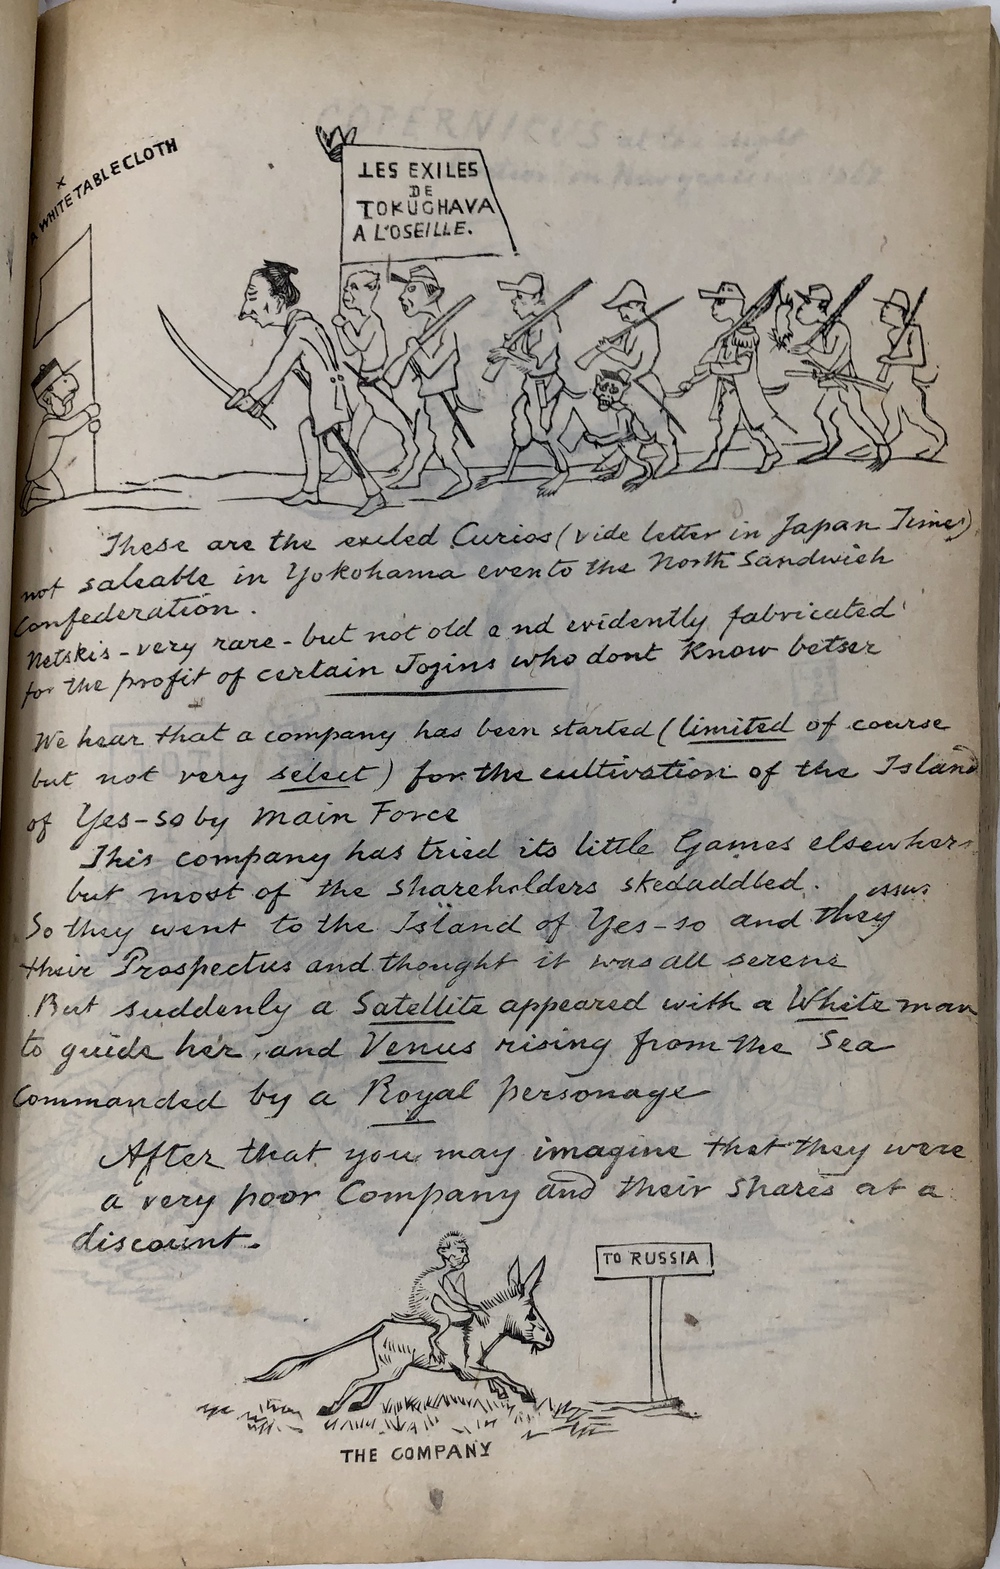 x
A WHITE TABLECLOTH
LES EXILES
DE
TOKUGHAVA
A L'OSEILLE.
These are the exiled Curios (vide letter in Japan Times)
not saleable in Yokohama even to the North Sandwich
Confederation.
Netskis - very rare - but not old and evidently fabricated
for the profit of certain Jogins who dont Know better
We hear that a company has been started (limited of course
but not very select) for the cultivation of the Island
of Yes-so by main Force
This company has tried its little Games elsewhere
but most of the shareholders skedaddled.
So they went to the Island of Yes-so and they issue
their Prospectus and thought it was all serene
But suddenly a Satellite appeared with a White man
to guide her, and Venus rising from the Sea
Commanded by a Royal personage
After that you may imagine that they were
a very poor Company and their Shares at a
discount.
TO RUSSIA
THE COMPANY